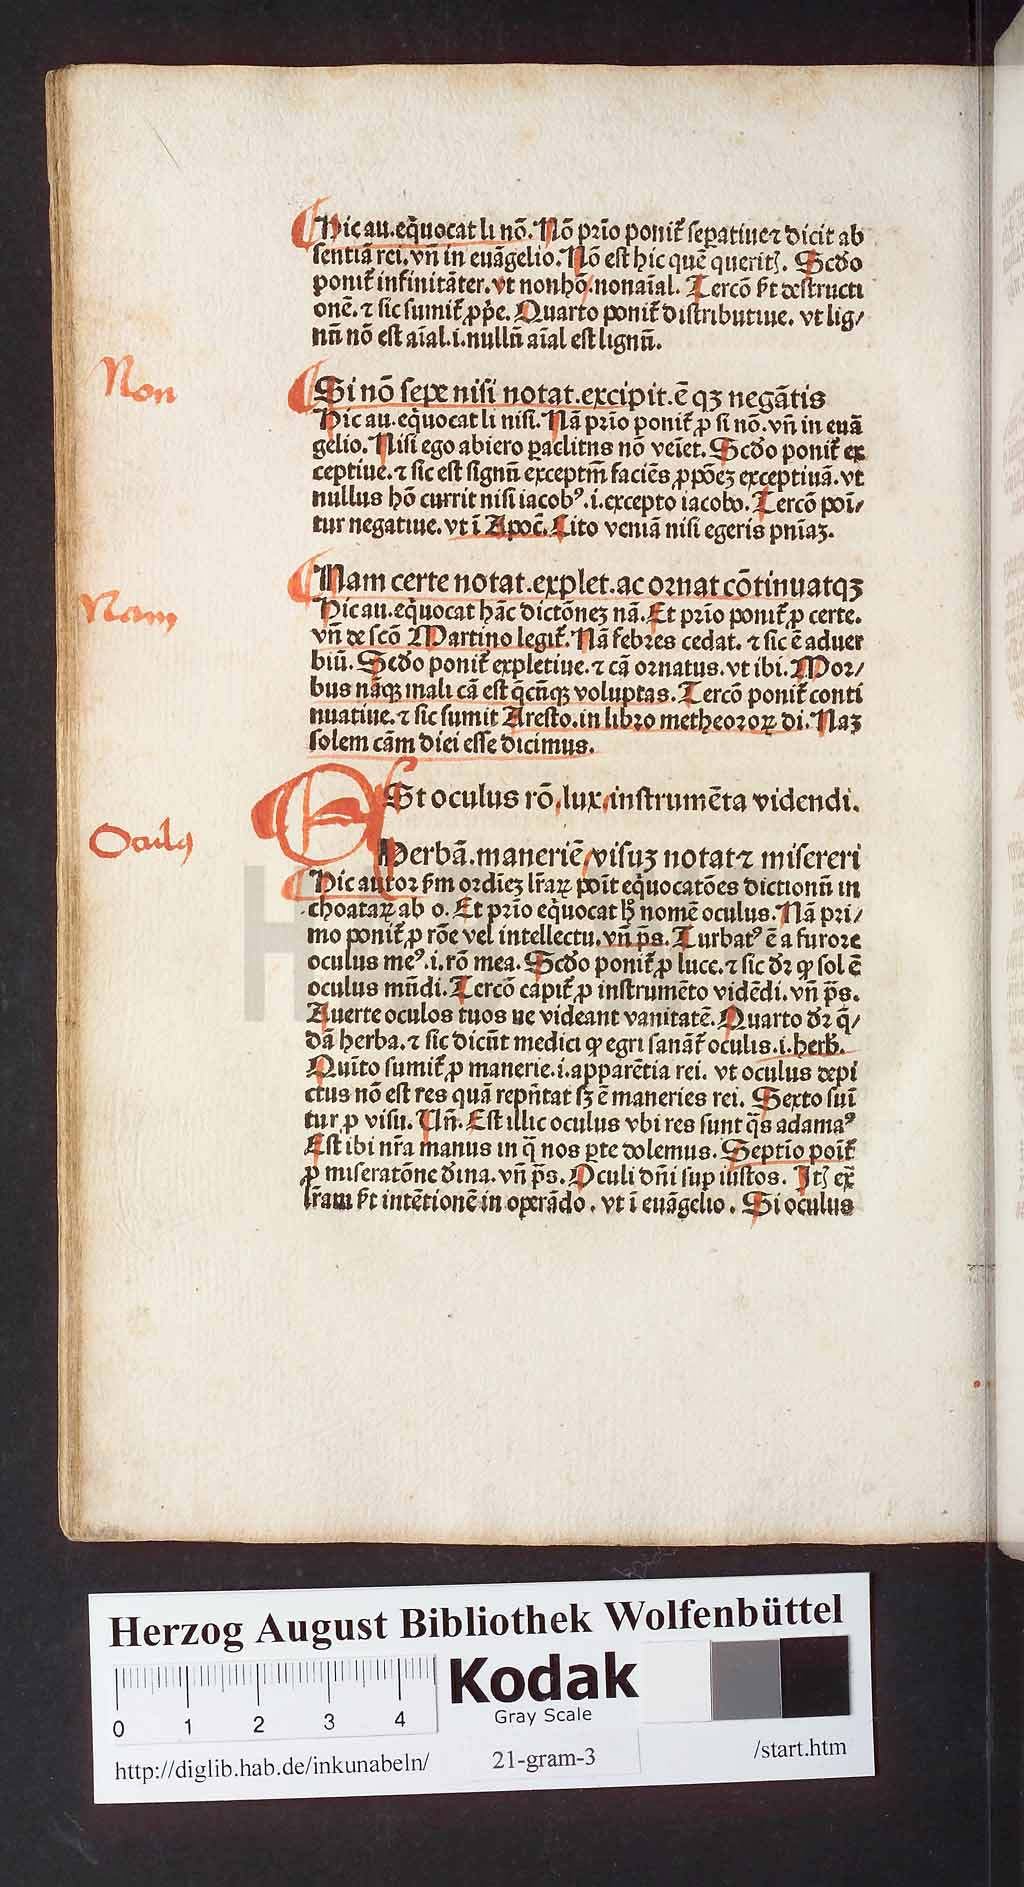 Hic au. eq̃uocat li nō. Nō prīo ponit̃ sepatiue ⁊ dicit ab
sentiā rei. vñ in euāgelio. Nō est hic quē querit̃. Scd̃o
ponit̃ infinitāter. vt nonhō. nonaīal. Tercō p̃t destructi
onē. ⁊ sic sumit̃ ꝓpe. Quarto ponit̃ distributiue. vt lig/
nū nō est aīal. i. nullū aīal est lignū.
Non
Si nō sepe nisi notat. excipit. ē qꝫ negātis
Hic au. eq̃uocat li nisi. Nā prīo ponit̃ ꝓ si nō. vñ in euā
gelio. Nisi ego abiero ꝑaclitus nō veīet. Scd̃o ponit̃ ex
ceptiue. ⁊ sic est signū exceptīn faciēs ꝓpōeꝫ exceptiuā. vt
nullus hō currit nisi iacobꝰ. i. excepto iacobo. Tercō poī/
tur negatiue. vt ī Apoc̄. Cito veniā nisi egeris pnīaꝫ.
Nam
Nam certe notat. explet. ac ornat cōtinuatqꝫ
Hic au. eq̃uocat hāc dictōneꝫ nā. Et prīo ponit̃ ꝓ certe.
vñ de scō Martino legit̃. Nā febres cedat. ⁊ sic ē aduer
biū. Scd̃o ponit̃ expletiue. ⁊ cā ornatus. vt ibi. Mor/
bus nāqꝫ mali cā est q̄cūqꝫ voluptas. Tercō ponit̃ conti
nuatiue. ⁊ sic sumit Aresto. in libro metheoroꝝ di. Naꝫ
solem cām diei esse dicimus.
ESt oculus rō, lux, instrumēta videndi.
Oculꝰ
Herbā. maneriē, visuꝫ notat ⁊ misereri
Hic autor s̄m ordīeꝫ lr̄aꝝ poīt eq̃uocatōes dictionū in
choataꝝ ab o. Et prīo eq̃uocat hͦ nomē oculus. Nā pri/
mo ponit̃ ꝓ rōe vel intellectu. vñ p̄s. Turbatꝰ ē a furore
oculus meꝰ. i. rō mea. Scd̃o ponit̃ ꝓ luce. ⁊ sic dr̄ ꝙ sol ē
oculus mūdi. Tercō capit̃ ꝓ instrumēto vidēdi. vñ p̄s.
Auerte oculos tuos ne videant vanitatē. Quarto dr̄ q̄/
dā herba. ⁊ sic dicūt medici ꝙ egri sanāt̃ oculis. i. herb̄.
Quīto sumit̃ ꝓ manerie. i. apparētia rei. vt oculus depi
ctus nō est res quā repn̄tat sꝫ ē maneries rei. Sexto suī
tur ꝓ visu. Uñ. Est illic oculus vbi res sunt q̄s adamaꝰ
Est ibi nr̄a manus in q̄ nos ꝑte dolemus. Septīo poīt̃
ꝓ miseratōne dīna. vñ p̄s. Oculi dn̄i sup iustos. Itꝫ ex̄
lr̄am p̃t intētionē in operādo. vt ī euāgelio. Si oculus
Herzog August Bibliothek Wolfenbüttel
Kodak
Gray Scale
0 1 2 3 4
http://diglib.hab.de/inkunabeln/ 21-gram-3 /start.htm